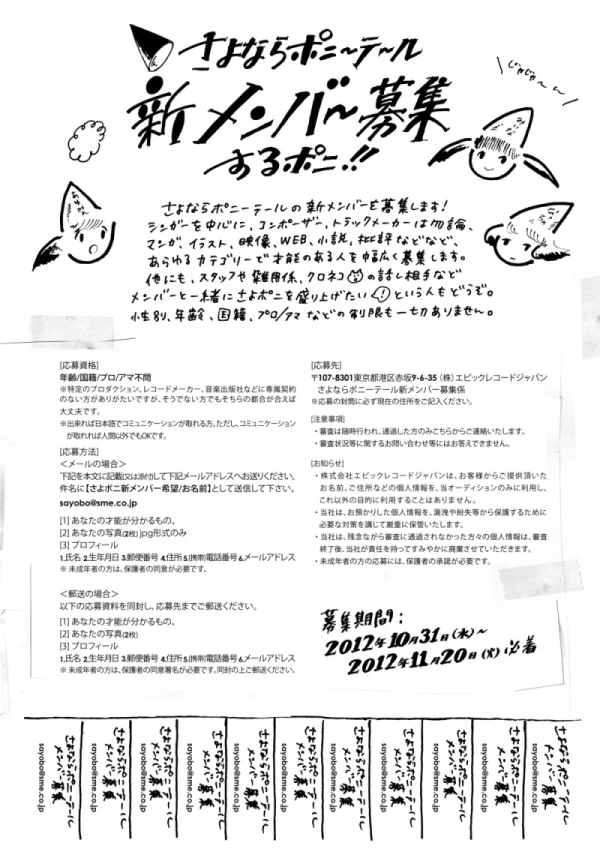 さよならポニーテール
じゃじゃーん
新メンバー募集
するポニ!!
さよならポニーテールの新メンバーを募集します!
シンガーを中心に、コンポーザー、トラックメーカーは勿論、
マンガ、イラスト、映像、WEB、小説、批評などなど、
あらゆるカテゴリーで才能のある人を幅広く募集します。
他にも、スタッフや雑用係、クロネコの話し相手など
メンバーと一緒にさよポニを盛り上げたい!という人もどうぞ。
性別、年齢、国籍、プロ/アマなどの制限も一切ありません。
[応募資格]
年齢/国籍/プロ/アマ不問
※特定のプロダクション、レコードメーカー、音楽出版社などに専属契約
のない方がありがたいですが、そうでない方でもそちらの都合が合えば
大丈夫です。
※出来れば日本語でコミュニケーションが取れる方。ただし、コミュニケーション
が取れれば人間以外でもOKです。
[応募方法]
<メールの場合>
下記を本文に記載(又は添付)して下記メールアドレスへお送りください。
件名に【さよポニ新メンバー希望/お名前】として送信して下さい。
sayobo@sme.co.jp
[1] あなたの才能が分かるもの。
[2] あなたの写真(2枚) jpg形式のみ
[3] プロフィール
1.氏名 2.生年月日 3.郵便番号 4.住所 5.(携帯)電話番号 6.メールアドレス
※ 未成年者の方は、保護者の同意が必要です。
<郵送の場合>
以下の応募資料を同封し、応募先までご郵送ください。
[1] あなたの才能が分かるもの。
[2] あなたの写真(2枚)
[3] プロフィール
1.氏名 2.生年月日 3.郵便番号 4.住所 5.(携帯)電話番号 6.メールアドレス
※ 未成年者の方は、保護者の同意署名が必要です。同封の上ご郵送ください。
[応募先]
〒107-8301 東京都港区赤坂9-6-35 (株)エピックレコードジャパン
さよならポニーテール新メンバー募集係
※応募の封筒に必ず現在の住所をご記入ください。
[注意事項]
・審査は随時行われ、通過した方のみこちらからご連絡いたします。
・審査状況等に関するお問い合わせ等にはお答えできません。
[お知らせ]
・株式会社エピックレコードジャパンは、お客様からご提供頂いた
お名前、ご住所などの個人情報を、当オーディションのみに利用し、
これ以外の目的に利用することはありません。
・当社は、お預かりした個人情報を、漏洩や紛失等から保護するために
必要な対策を講じて厳重に保管いたします。
・当社は、残念ながら審査に通過されなかった方々の個人情報は、審査
終了後、当社が責任を持ってすみやかに廃棄させていただきます。
・未成年の方の応募には、保護者の承諾が必要です。
募集期間:
2012年10月31日(水)~
2012年11月20日(火)必着
さよならポニーテール
メンバー募集
sayobo@sme.co.jp
さよならポニーテール
メンバー募集
sayobo@sme.co.jp
さよならポニーテール
メンバー募集
sayobo@sme.co.jp
さよならポニーテール
メンバー募集
sayobo@sme.co.jp
さよならポニーテール
メンバー募集
sayobo@sme.co.jp
さよならポニーテール
メンバー募集
sayobo@sme.co.jp
さよならポニーテール
メンバー募集
sayobo@sme.co.jp
さよならポニーテール
メンバー募集
sayobo@sme.co.jp
さよならポニーテール
メンバー募集
sayobo@sme.co.jp